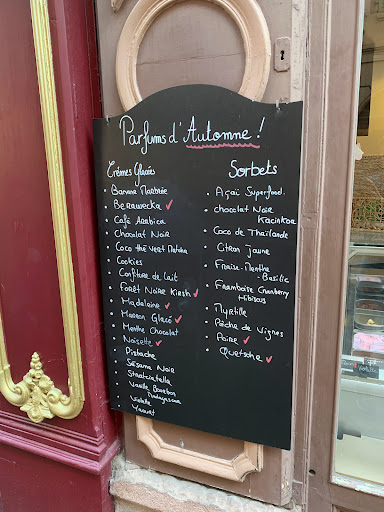 Parfums d'Automne !
Crèmes Glacées
Banane Marbrée
Berawecka ✓
Café Arabica
Chocolat Noir
Coco thé vert Matcha
Cookies
Confiture de lait
Forêt Noire Kirsh ✓
Madeleine ✓
Marron Glacé ✓
Menthe Chocolat
Noisette ✓
Pistache
Sésame Noir
Straciatella
Vanille Bourbon
Madagascar
Violette
Yaourt
Sorbets
Açaï Superfood
chocolat Noir
Kacinkoa
Coco de Thaïlande
Citron jaune
Fraise-Menthe
Basilic
Framboise Cranberry
Hibiscus
Myrtille
Pêche de Vignes
Poire ✓
Quetsche ✓